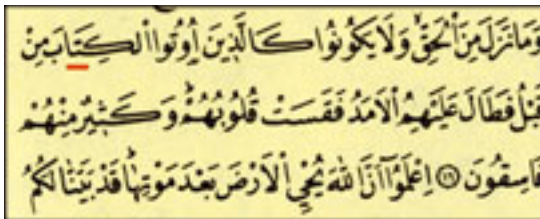 وَمَا نَزَلَ مِنَ الْحَقِّ وَلَا يَكُونُوا كَالَّذِينَ أُوتُوا الْكِتَابَ مِنْ
قَبْلُ فَطَالَ عَلَيْهِمُ الْأَمَدُ فَقَسَتْ قُلُوبُهُمْ وَكَثِيرٌ مِنْهُمْ
فَاسِقُونَ ﴿١٦﴾ اِعْلَمُوا أَنَّ اللَّهَ يُحْيِي الْأَرْضَ بَعْدَ مَوْتِهَا قَدْ بَيَّنَّا لَكُمُ